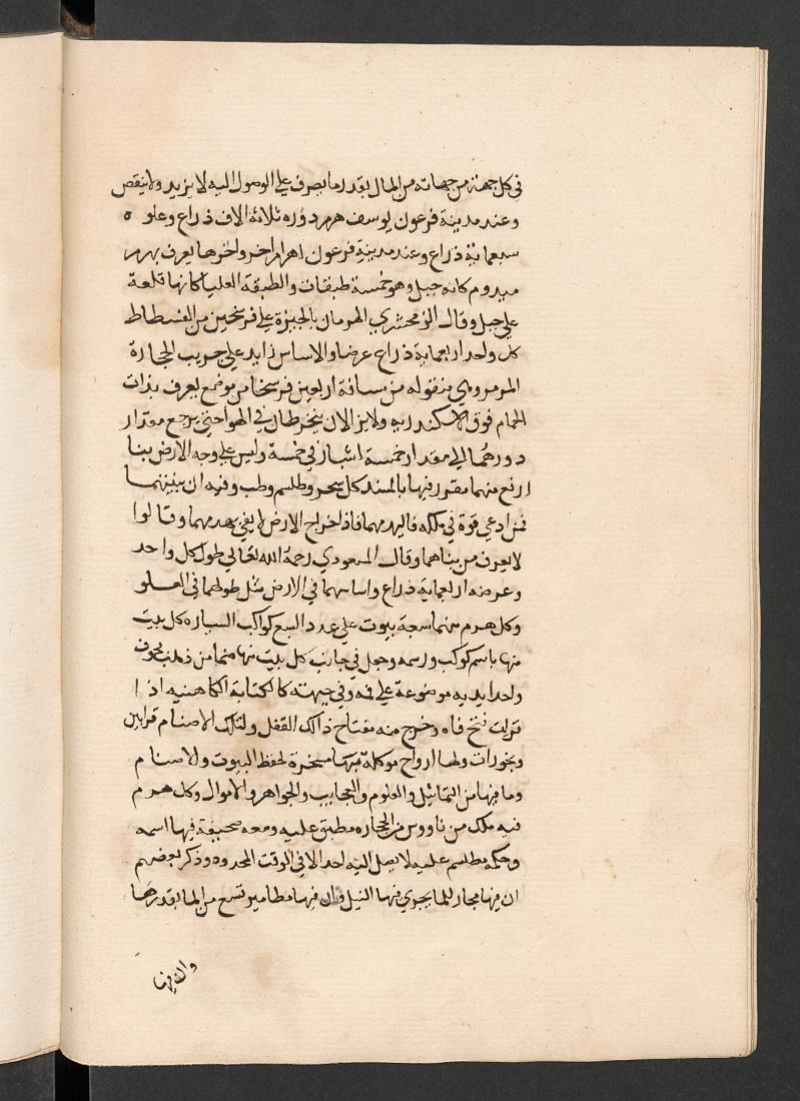 في كل جهة من جهاته من المال بقدر ما يصرف علي الوصول اليه لا يزيد ولا ينقص
وعند مدينة فرعون يوسف هرم دوره ثلاثة الاف ذراع وعلوه
سبعماية ذراع وعند مدينة فرعون اهرام اخر واخرها يعرف بهرم
ميدوم كانه جبل وهو خمسة طبقات والطبقة العليا كانها قلعة
علي جبل وقال الزمخشري الهرمان بالجيزة علي فرسخين من الفسطاط
كل واحد اربعماية ذراع عرضا والاساس زايد علي جريب الحجارة
المرمر وهي منقوله من مسافة اربعين فرسخا من موضع يعرف بذات
الحمام فوق الاسكندريه ولا يزالان ينخرطان في الهوا حتي يرجع مقدار
دورهما الي مقدار خمسة اشبار في خمسة وليس علي وجه الارض بنا
ارفع منهما مقور فيها بالمسند كل سحر وطلسم وطب وفيه ان بنيتهما
فمن ادعي قوة في ملكه فاليهدمهما فاذا خراج الارض لا يفي بهدمهما وقالوا
لا يعرف من بناهما وقال المسعودي رحمة الله تعالي طول كل واحد
وعرضه اربعماية ذراع واساسهما في الارض مثل طولهما في العلو
وكل هرم منهما سبعة بيوت علي عدد السبع كواكب السياره كل بيت
منها باسم كوكب ورسمه وجعل في جانب كل بيت منها صنما من ذهب مجوف
واحد ايديه موضوعة علي فمه وفي جبهته كالكتابة الكاهنيه اذا
قريت فتح فاه وخرج منه مفتاح ذالك القفل ولتلك الاصنام قرابين
وبخورات ولها ارواح موكلة بها مسخرة لحفظ البيوت والاصنام
وما فيها من التماثيل والعلوم والعجايب والجواهر والاموال وكل هرم
فيه ملك من ناووس من الحجاره مطبق عليه ومعه صحيفة فيها اسمه
وحكمه مطلسم عليه لا يصل اليه احد الا في الوقت المحدود وذكر بعضهم
ان فيها مجار للما يجري فيها النيل وان فيها مطامير تسع من الما بقدرها
وان فيها